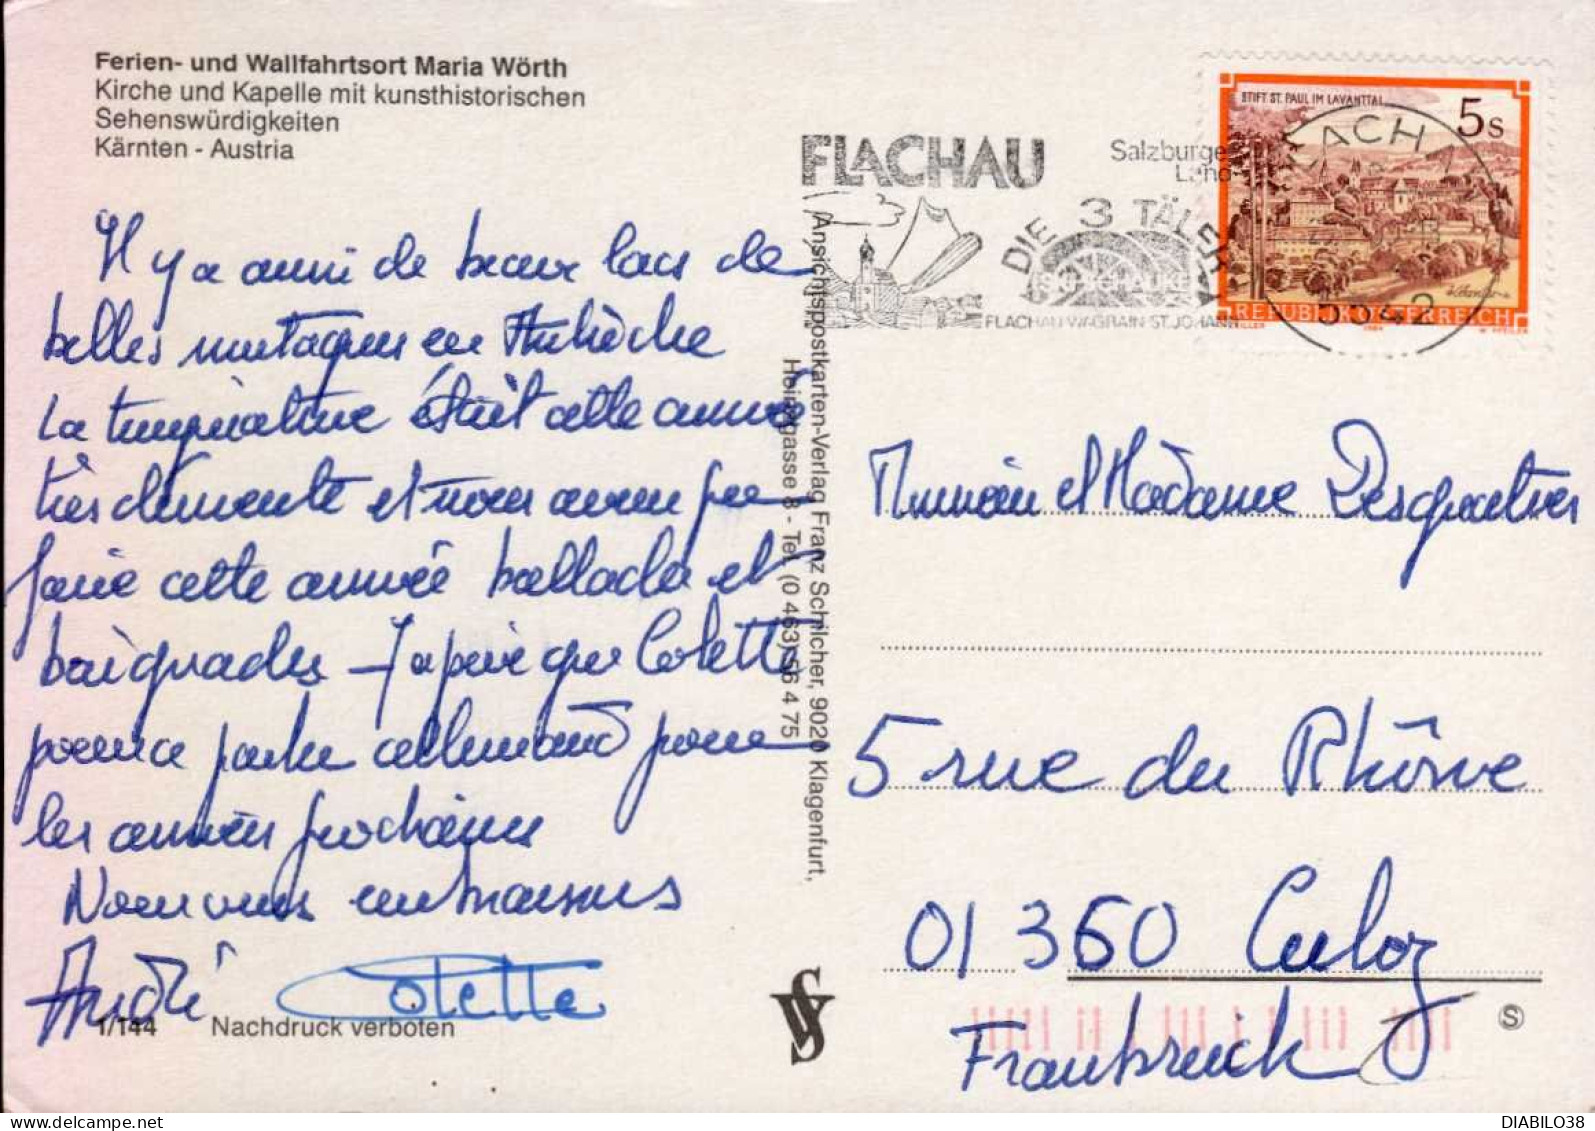 Ferien- und Wallfahrtsort Maria Wörth
Kirche und Kapelle mit kunsthistorischen
Sehenswürdigkeiten
Kärnten - Austria
Il y a aussi de beaux lacs de
belles montagnes en Autriche
La température était cette année
très clémente et nous avons pu
faire cette année ballades et
baignades - J'espère que Colette
pourra parler allemand pour
les années prochaines
Nous vous embrassons
André Colette
1/144 Nachdruck verboten
Ansichtspostkarten-Verlag Franz Schilcher, 9020 Klagenfurt,
Heinzgasse 8 - Tel. (0 463) 56 4 75
FLACHAU
Salzburger
Land
DIE 3 TÄLER
SKISCHAUKEL
FLACHAU WAGRAIN ST. JOHANN
STIFT ST. PAUL IM LAVANTTAL
5 S
REPUBLIK ÖSTERREICH
FLACHAU
5542
Monsieur et Madame Desgouttes
5 rue du Rhône
01350 Culoz
Frankreich
VS
S
DIABILO38